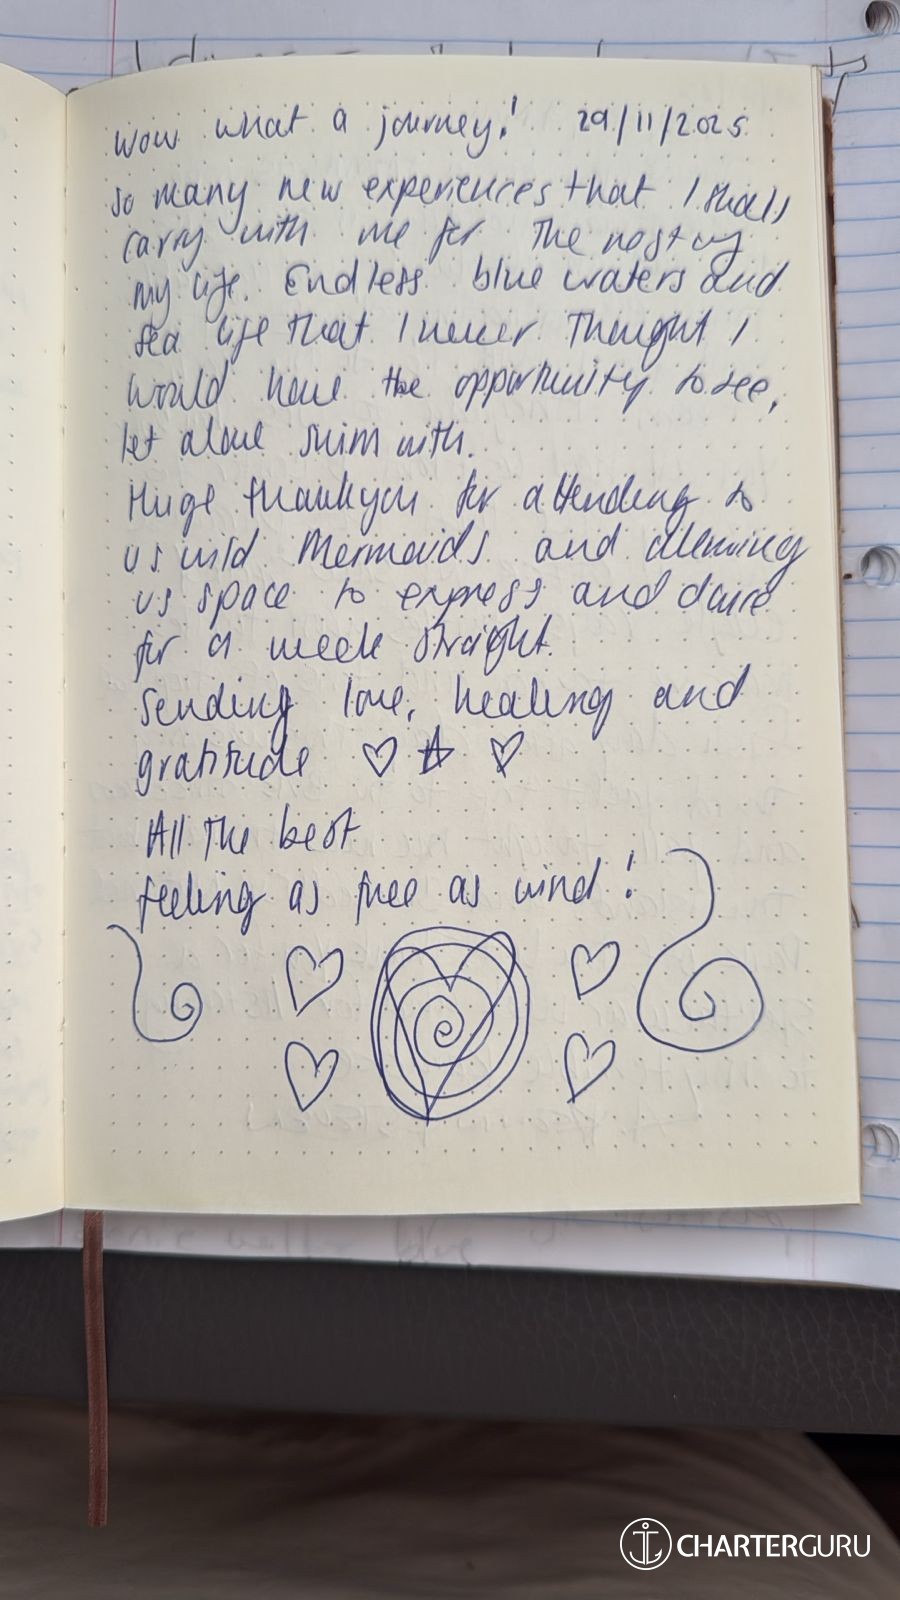 Wow what a journey! 29/11/2025
So many new experiences that I shall
carry with me for the rest of
my life. Endless blue waters and
sea life that I never thought I
would have the opportunity to see,
let alone swim with.
Huge thankyou for attending to
us wild Mermaids and allowing
us space to express and dance
for a week straight.
Sending love, healing and
gratitude
All the best
feeling as free as wind!
CHARTERGURU